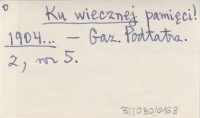 Ku wiecznej pamięci!
1904... — Gaz. Podtatrz.
2, nr 5.